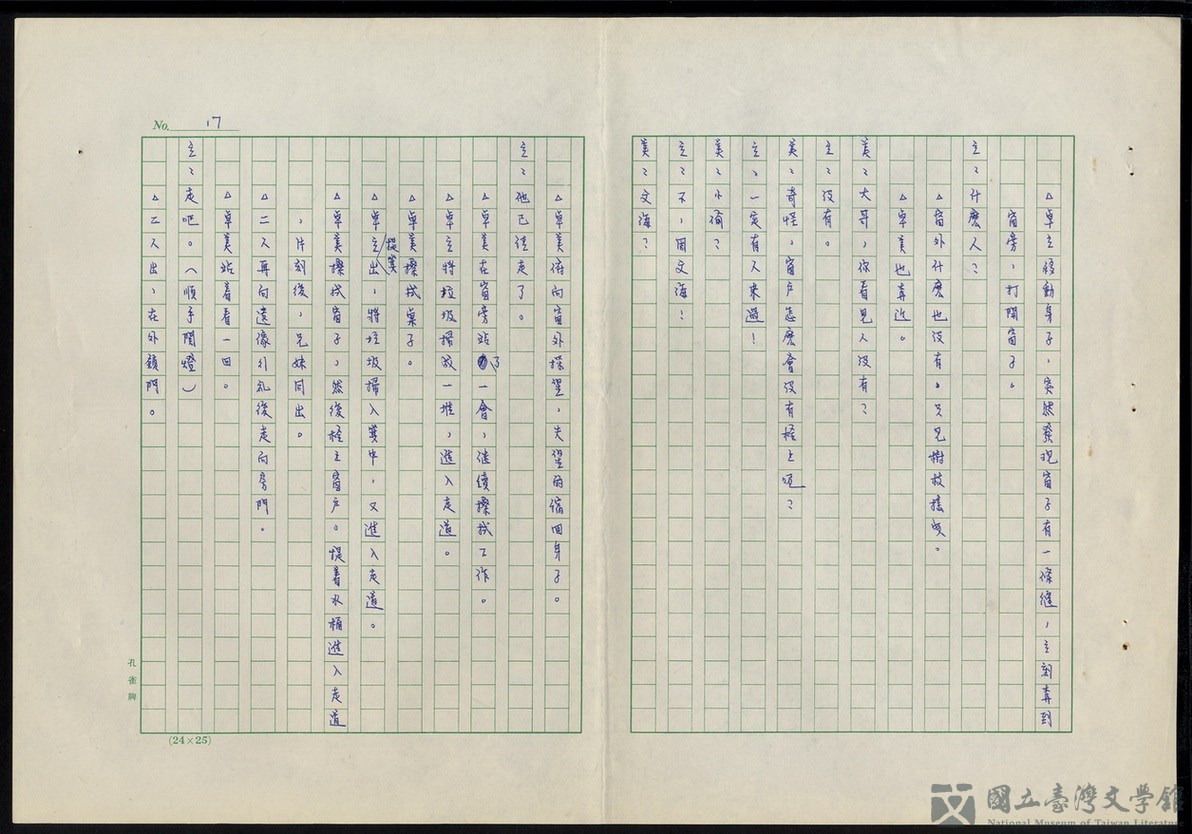 △卓立移動身子，突然發現窗子有一條縫，立刻奔到
窗旁，打開窗子。
立：什麼人？
△窗外什麼也沒有。只見樹枝搖曳。
△卓美也奔近。
美：大哥，你看見人沒有？
立：沒有。
美：奇怪，窗户怎麼會沒有栓上呢？
立：一定有人來過！
美：小倩？
立：不，周文海！
美：文海？
△卓美俯向窗外探望，失望的縮回身子。
立：他已經走了。
△卓美在窗旁站了一會，継續擦拭工作。
△卓立將垃圾掃成一堆，進入走道。
△卓美擦拭桌子。
△卓立提箕出，將垃圾掃入箕中，又進入走道。
△卓美擦拭窗子，然後栓上窗户。提著水桶進入走道
，片刻後，兄妹同出。
△二人再向遺像行礼後走向房門。
△卓美站着看一回。
立：走吧。（順手関燈）
△二人出，在外鎖門。
No. 17
孔雀牌
(24×25)
國立臺灣文學館
National Museum of Taiwan Literature